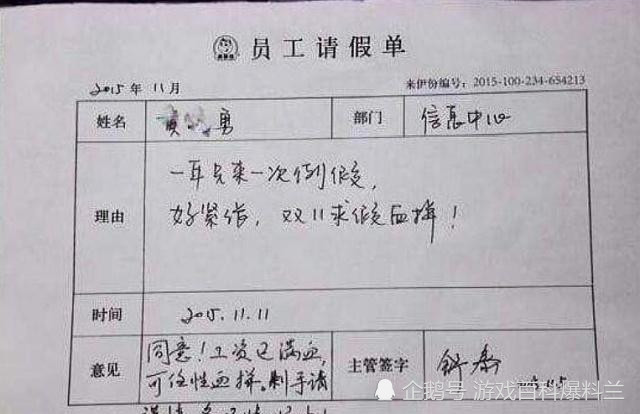 员工请假单
2015年 11月
来伊份编号：2015-100-234-654213
姓名 黄 勇 部门 信息中心
理由
一年只来一次例假，
好紧张，双11求假血拼！
时间 2015.11.11
意见 同意！工资已满血， 主管签字
可任性血拼。剁手请
企鹅号 游戏百科爆料兰